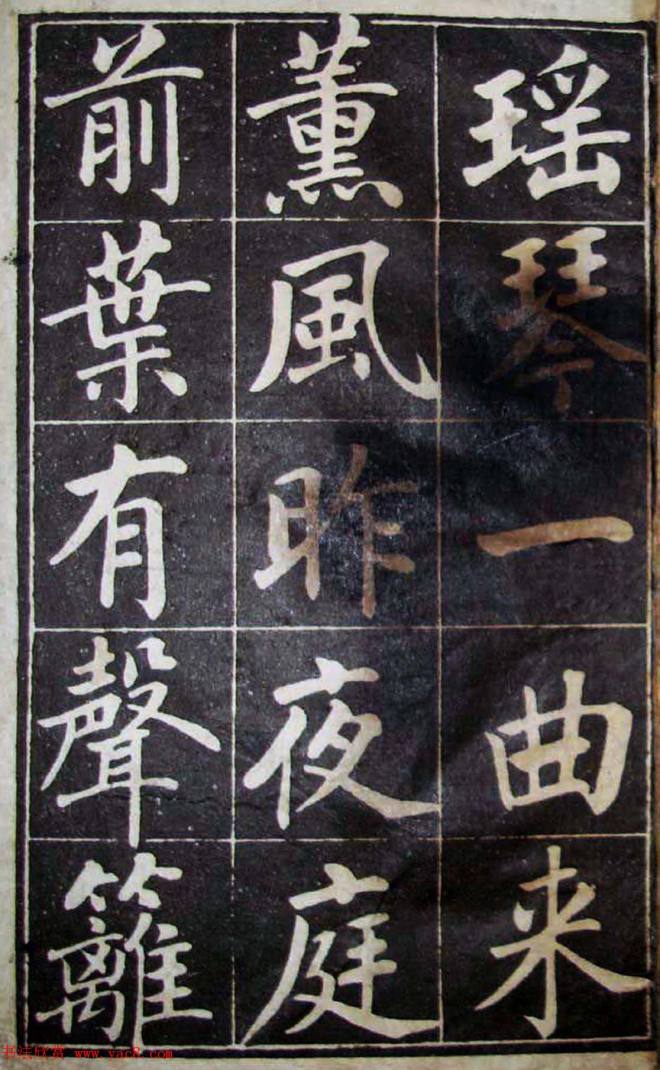 瑶琴一曲来
薰風昨夜庭
前葉有聲籬
书法欣赏 www.yac8.com